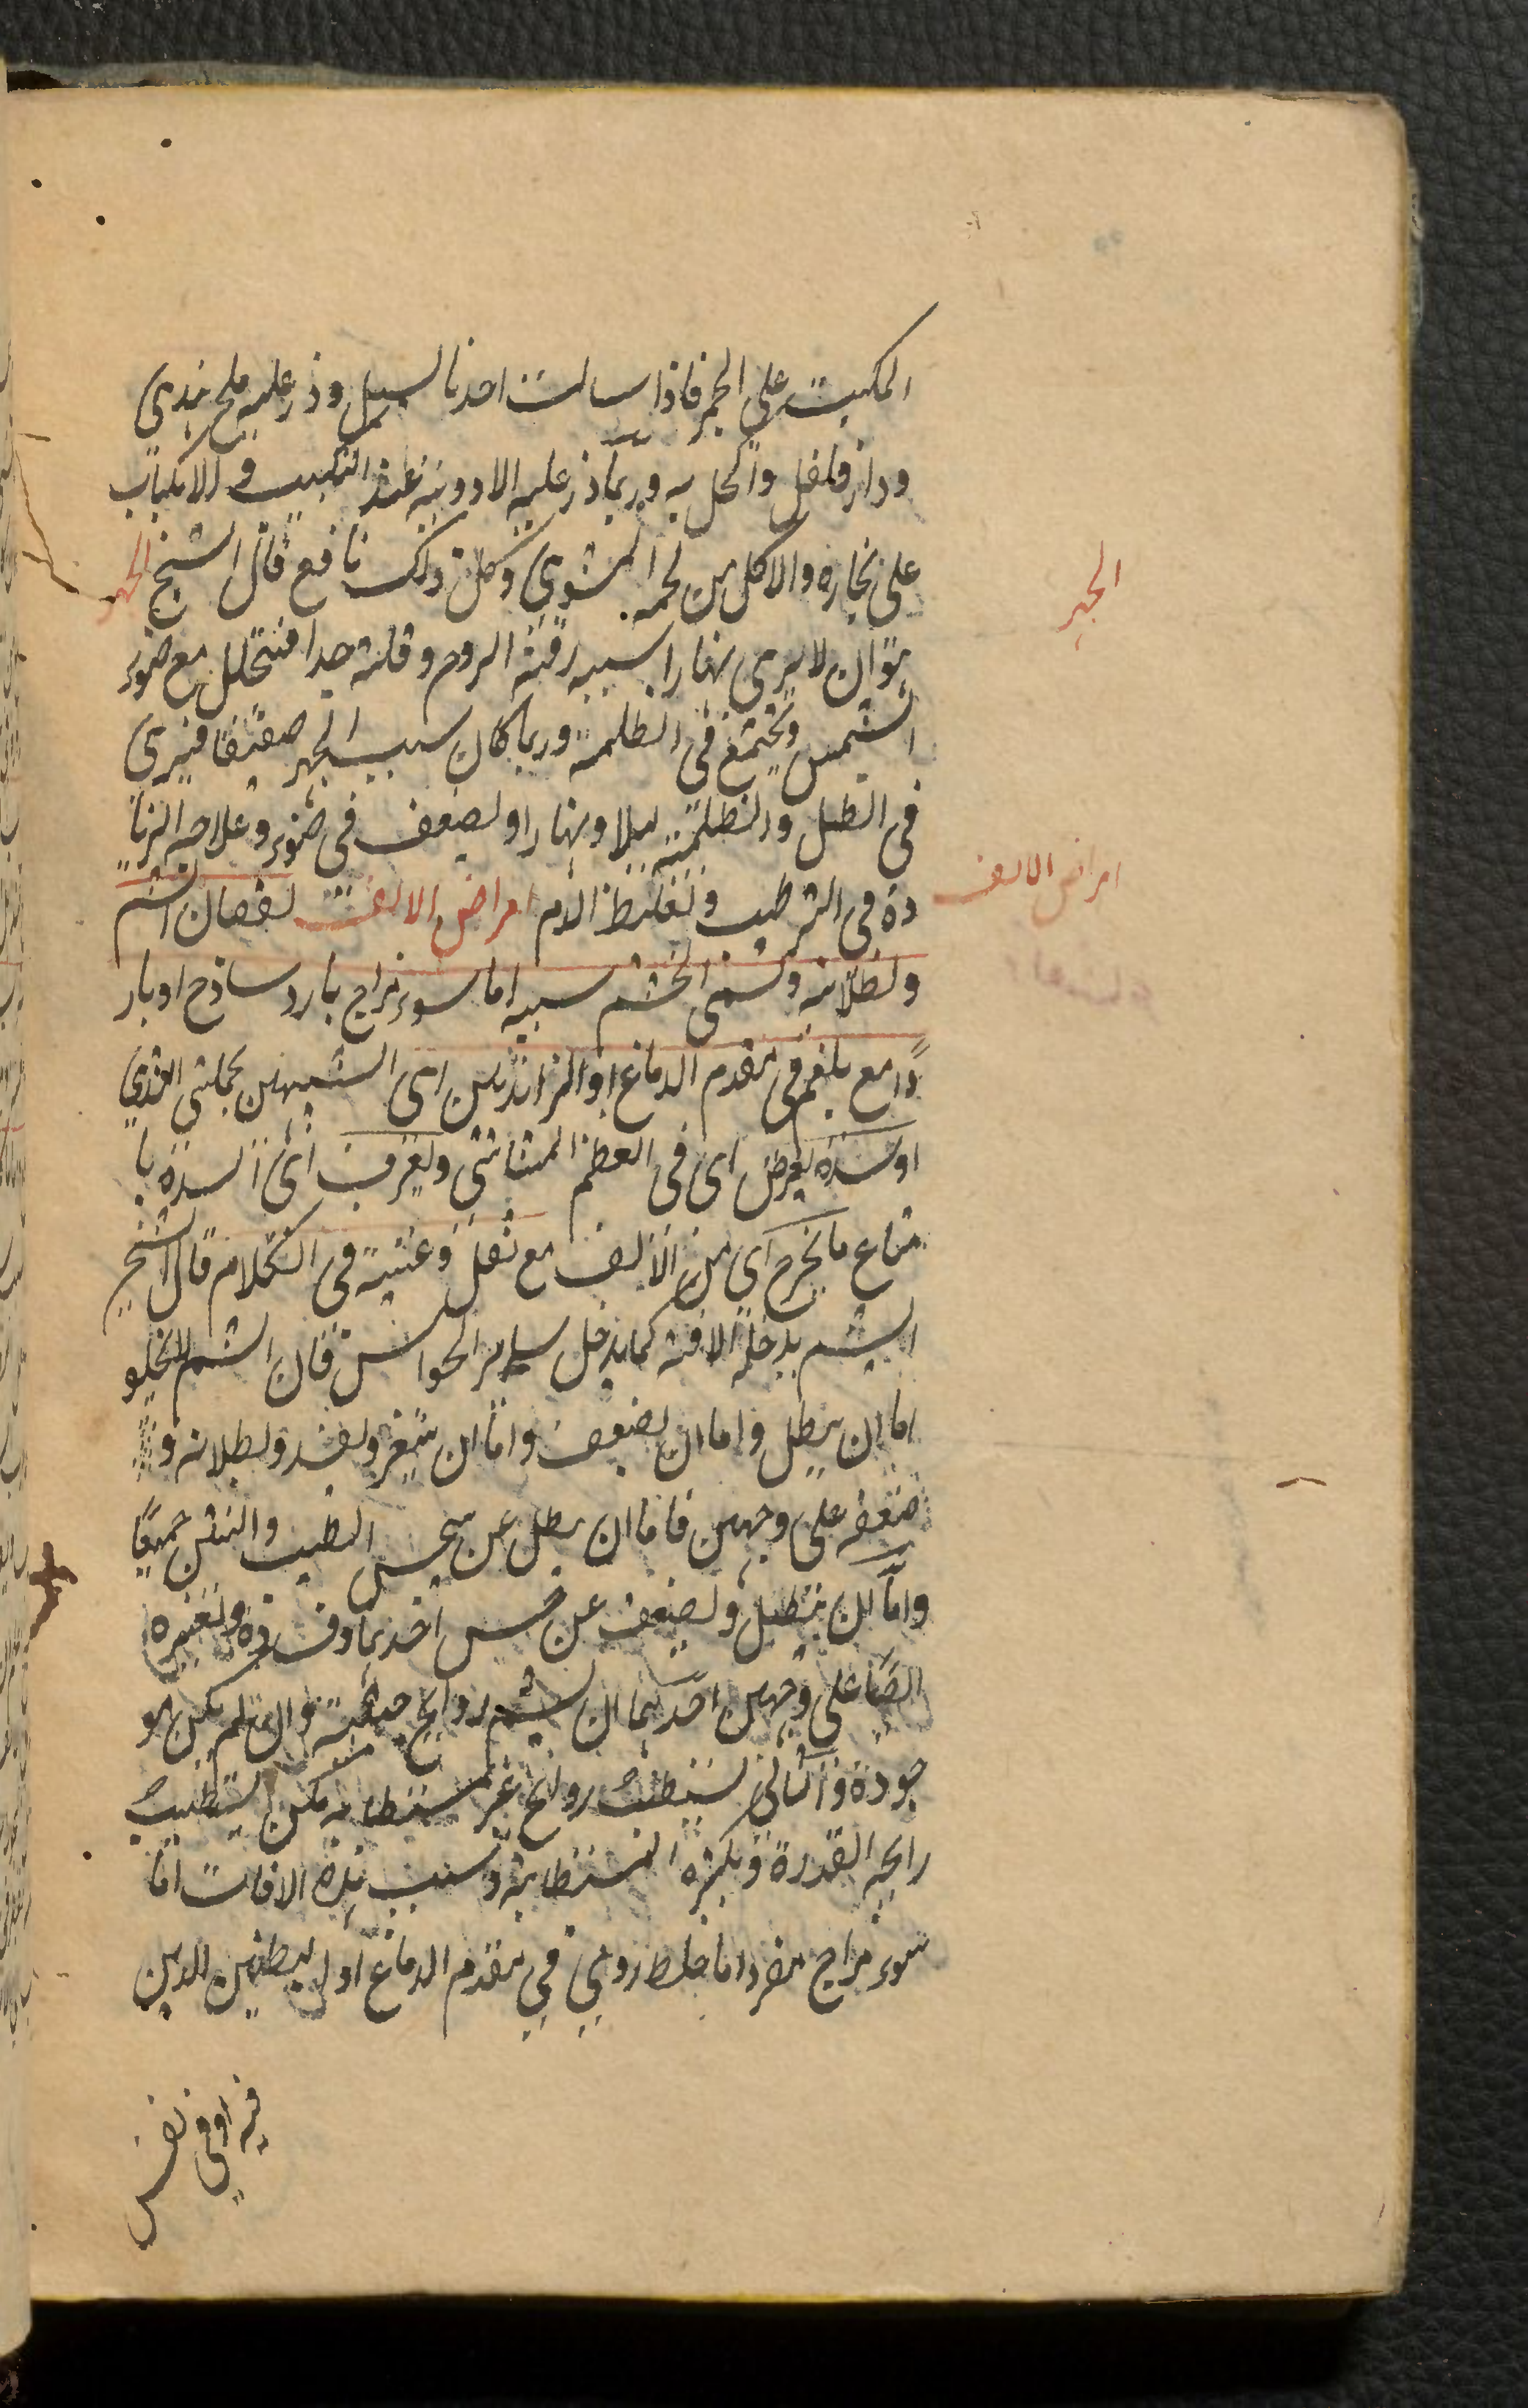 المكبب على الجمر فاذا سالت اخذنا لسيل وذر عليه ملح هندي
ودار فلفل واكحل به وربما ذر عليه الادوية عند التكبيب والانكباب
على بخاره والاكل من لحمه المشوي وكل ذلك نافع قال الشيخ الجهر
هو ان لا يرى نهارا سببه رقة الروح وقلته جدا فتتحلل مع ضوء
الشمس ويجتمع في الظلمة وربما كان سبب الجهر ضعيفا فيرى
في الظل والظلمة ليلا ونهارا ولضعف في ضوء وعلاجه الزيا
دة في الترطيب وتغليظ الدم امراض الانف نقصان الشم
وبطلانه ويسمى الخشم سببه اما سوء مزاج بارد ساذج او بار
دا مع بلغم في مقدم الدماغ او الزائدتين اي الشبيهتين بحلمتي الثدي
او سدة تعرض اي في العظم المشاشي ويعرف اي السدة با
متناع ما يخرج اي من الانف مع ثقل وغنة في الكلام قال الشيخ
الشم يدخله الافة كما يدخل سائر الحواس فان الشم لا يخلو
اما ان يبطل واما ان يضعف واما ان يتغير ويفسد وبطلانه و
ضعفه على وجهين فاما ان يبطل عن حس الطيب والنتن جميعا
واما ان يبطل ويضعف عن حس احدهما وفساده وتغيره
ايضا على وجهين احدهما ان يشم روايح خبيثة وان لم يكن مو
جودة والثاني يستطيب روايح غير مستطابة كمن يستطيب
رايحه القذرة ويكره المستطابة وسبب هذه الافات اما
سوء مزاج مفرد اما خلط ردي في مقدم الدماغ او البطنين الذين
فيه او في نفس
الجهر
امراض الانف